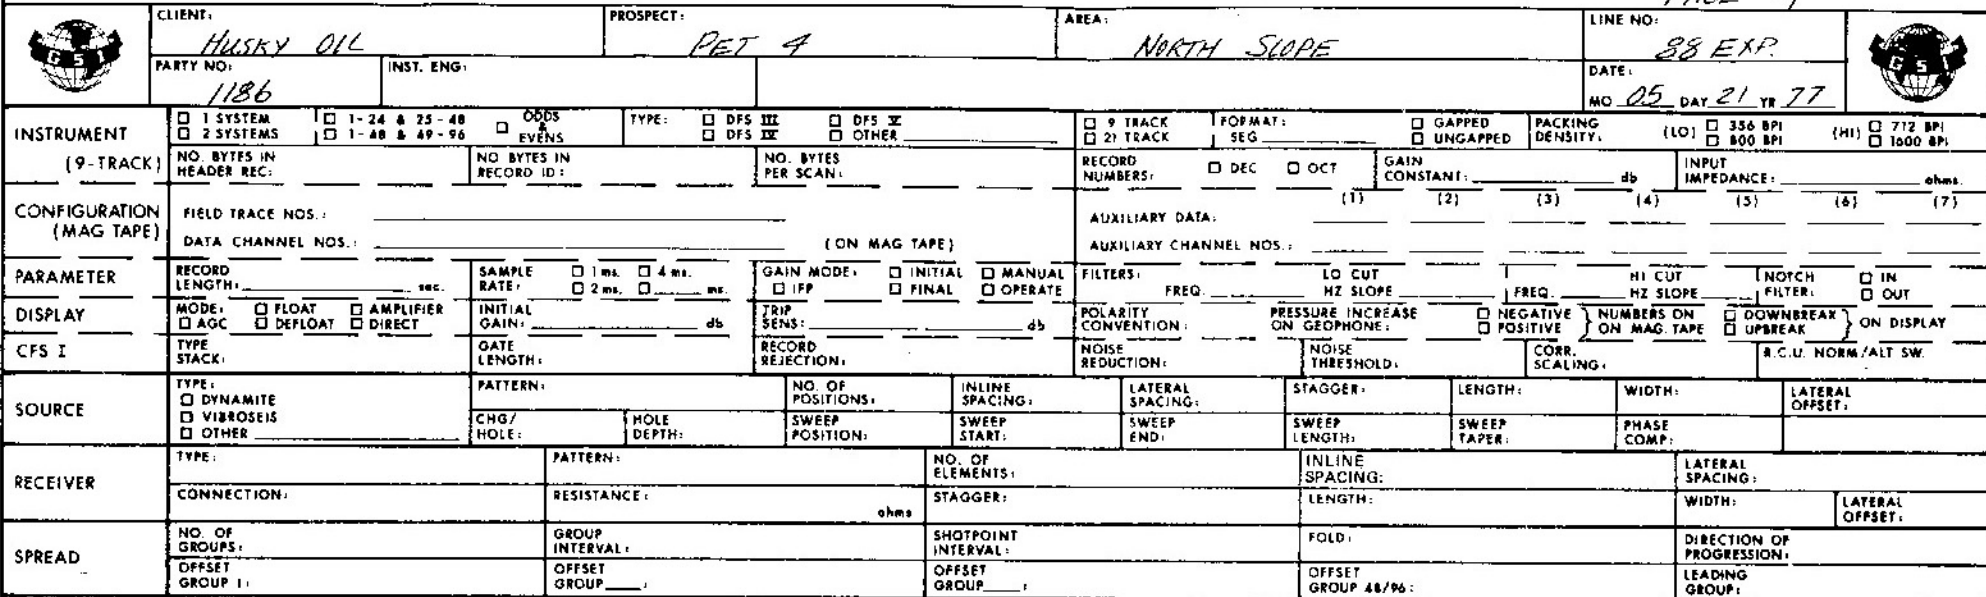 PAGE
CLIENT: HUSKY OIL PROSPECT: PET 4 AREA: NORTH SLOPE LINE NO: 88 EXP.
GSI GSI
PARTY NO: 1186 INST. ENG: DATE: MO 05 DAY 21 YR 77
INSTRUMENT (9-TRACK)
☐ 1 SYSTEM ☐ 1-24 & 25-48 ☐ ODDS & EVENS TYPE: ☐ DFS III ☐ DFS V ☐ 9 TRACK FORMAT: ☐ GAPPED PACKING DENSITY: (LO) ☐ 356 BPI (HI) ☐ 712 BPI
☐ 2 SYSTEMS ☐ 1-48 & 49-96 ☐ DFS IV ☐ OTHER ☐ 21 TRACK SEG ☐ UNGAPPED ☐ 800 BPI ☐ 1600 BPI
NO. BYTES IN HEADER REC: NO BYTES IN RECORD ID: NO. BYTES PER SCAN: RECORD NUMBERS: ☐ DEC ☐ OCT GAIN CONSTANT: db INPUT IMPEDANCE: ohms.
CONFIGURATION (MAG TAPE)
(1) (2) (3) (4) (5) (6) (7)
FIELD TRACE NOS.: AUXILIARY DATA:
DATA CHANNEL NOS.: (ON MAG TAPE) AUXILIARY CHANNEL NOS.:
PARAMETER
RECORD LENGTH: sec. SAMPLE RATE: ☐ 1 ms. ☐ 4 ms. ☐ 2 ms. ☐ ms. GAIN MODE: ☐ INITIAL ☐ MANUAL ☐ IFP ☐ FINAL ☐ OPERATE FILTERS: FREQ. LO CUT HZ SLOPE FREQ. HI CUT HZ SLOPE NOTCH FILTER: ☐ IN ☐ OUT
DISPLAY
MODE: ☐ FLOAT ☐ AMPLIFIER ☐ AGC ☐ DEFLOAT ☐ DIRECT INITIAL GAIN: db TRIP SENS: db POLARITY CONVENTION: PRESSURE INCREASE ON GEOPHONE: ☐ NEGATIVE ☐ POSITIVE } NUMBERS ON ON MAG. TAPE ☐ DOWNBREAK ☐ UPBREAK } ON DISPLAY
CFS I
TYPE STACK: GATE LENGTH: RECORD REJECTION: NOISE REDUCTION: NOISE THRESHOLD: CORR. SCALING: R.C.U. NORM/ALT SW.
SOURCE
TYPE: ☐ DYNAMITE ☐ VIBROSEIS ☐ OTHER
PATTERN: NO. OF POSITIONS: INLINE SPACING: LATERAL SPACING: STAGGER: LENGTH: WIDTH: LATERAL OFFSET:
CHG/HOLE: HOLE DEPTH: SWEEP POSITION: SWEEP START: SWEEP END: SWEEP LENGTH: SWEEP TAPER: PHASE COMP:
RECEIVER
TYPE: PATTERN: NO. OF ELEMENTS: INLINE SPACING: LATERAL SPACING:
CONNECTION: RESISTANCE: ohms STAGGER: LENGTH: WIDTH: LATERAL OFFSET:
SPREAD
NO. OF GROUPS: GROUP INTERVAL: SHOTPOINT INTERVAL: FOLD: DIRECTION OF PROGRESSION:
OFFSET GROUP 1: OFFSET GROUP____: OFFSET GROUP____: OFFSET GROUP 48/96: LEADING GROUP: